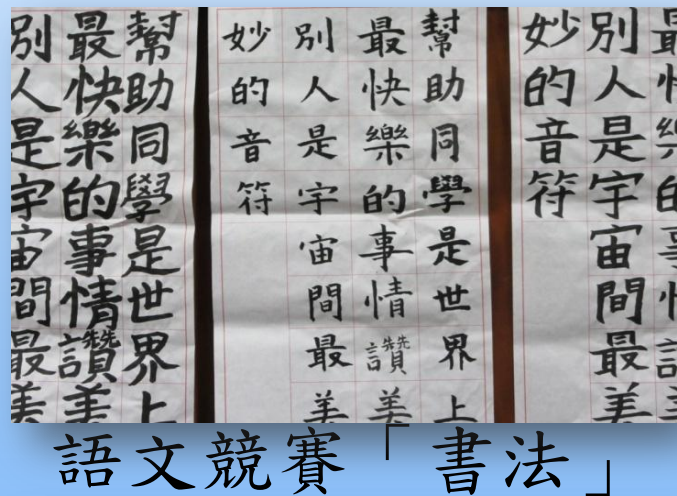 幫助同學是世界上
最快樂的事情讚美
別人是宇宙間最美
幫助同學是世界上
最快樂的事情讚美
別人是宇宙間最美
妙的音符
別人是宇宙間最美
妙的音符
語文競賽「書法」